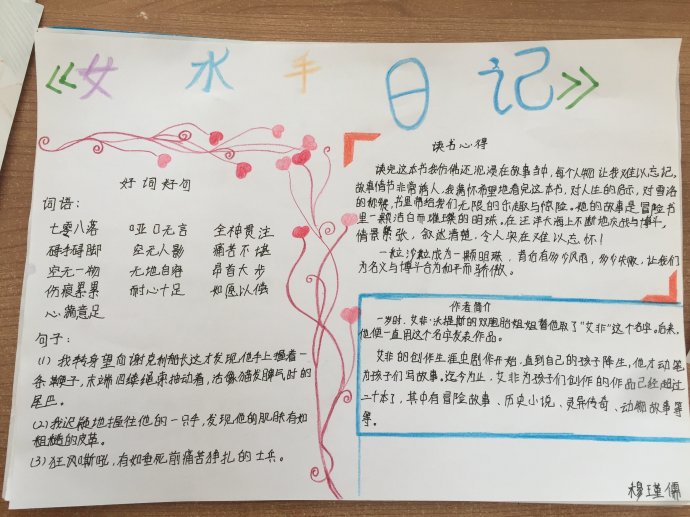 《女水手日记》
好词好句
词语:
七零八落 哑口无言 全神贯注
碍手碍脚 空无人影 痛苦不堪
空无一物 无地自容 昂首大步
伤痕累累 耐心十足 如愿以偿
心满意足
句子:
(1) 我转身望向谢克利船长这才发现他手上握着一
条鞭子,末端四缕绳索抽动着,活像猫发脾气时的
尾巴。
(2) 我迟疑地握住他的一只手,发现他的肌肤有如
粗糙的皮革。
(3) 狂风嘶吼,有如垂死前痛苦挣扎的士兵。
读书心得
读完这本书我仿佛还沉浸在故事当中,每个人物让我难以忘记。
故事情节非常诱人,我满怀希望地看完这本书,对人生的启示,对雪洛
的 ,书里带给我们无限的乐趣与惊险。她的故事是冒险书
里一颗洁白而璀璨的明珠,在汪洋大海上不断地 战与博斗。
情景紧张,叙述清楚,令人实在难以忘怀!
一粒沙粒成为一颗明珠,背后有多少风雨,多少失败,让我们
为名义与博斗合为和平而骄傲。
作者简介
一岁时,艾非·沃提斯的双胞胎姐姐替他取了"艾非"这个名字。后来,
他便一直用这个名字发表作品。
艾非的创作生涯由剧作开始,直到自己的孩子降生,他才动笔
为孩子们写故事。迄今为止,艾非为孩子们创作的作品已经超过
二十本了,其中有冒险故事、历史小说、灵异传奇、动物故事等
等。
穆瑾儒